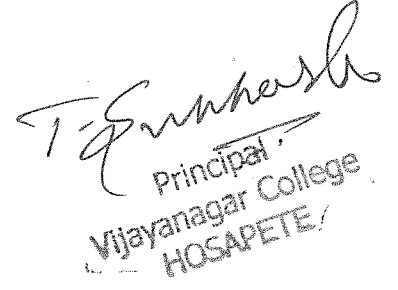 Principal
Vijayanagar College
HOSAPETE